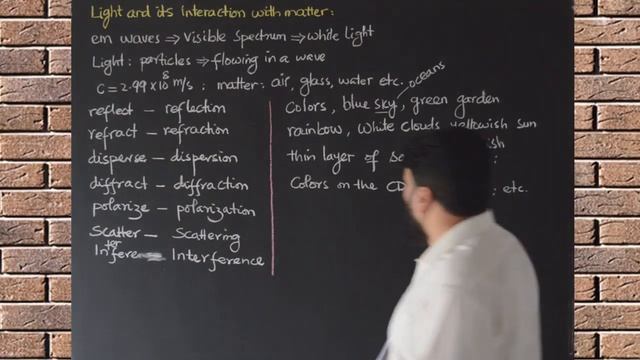 Light and its Interaction with matter:
em waves ⇒ Visible Spectrum ⇒ while light
Light: particles ⇒ flowing in a wave
C = 2.99 x 10^8 m/s ; matter: air, glass, water etc.
oceans
reflect – reflection
refract – refraction
disperse – dispersion
diffract – diffraction
polarize – polarization
Scatter – Scattering
Interfere – Interference
Colors, blue sky, green garden
rainbow, white clouds yellowish sun
thin layer of
Colors on the CD ; etc.